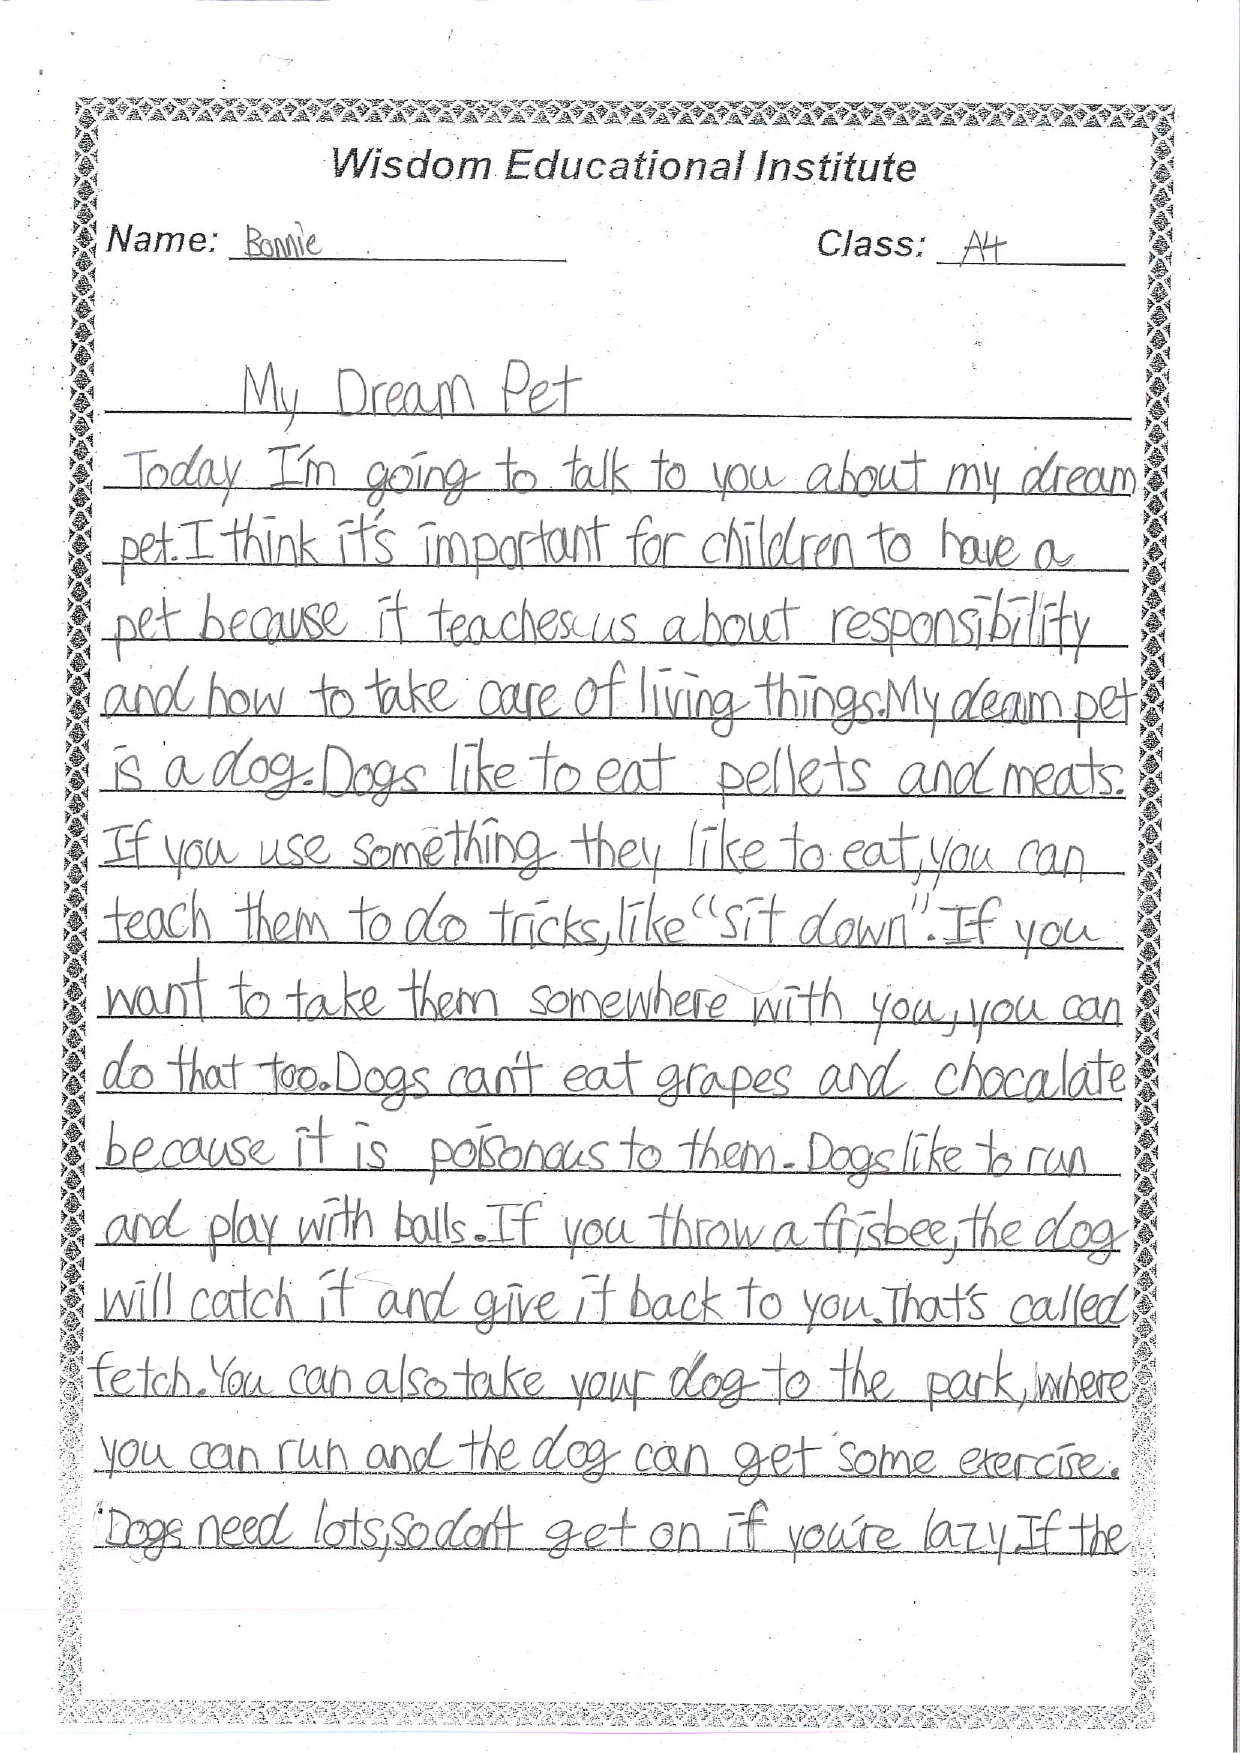 Wisdom Educational Institute
Name: Bonnie Class: A4
My Dream Pet
Today I'm going to talk to you about my dream
pet. I think it's important for children to have a
pet because it teaches us about responsibility
and how to take care of living things. My deam pet
is a dog. Dogs like to eat pellets and meats.
If you use something they like to eat, you can
teach them to do tricks, like "sit down". If you
want to take them somewhere with you, you can
do that too. Dogs can't eat grapes and chocalate
because it is poisonous to them. Dogs like to run
and play with balls. If you throw a frisbee, the dog
will catch it and give it back to you. That's called
fetch. You can also take your dog to the park, where
you can run and the dog can get some exercise.
Dogs need lots, so don't get on if you're lazy If the